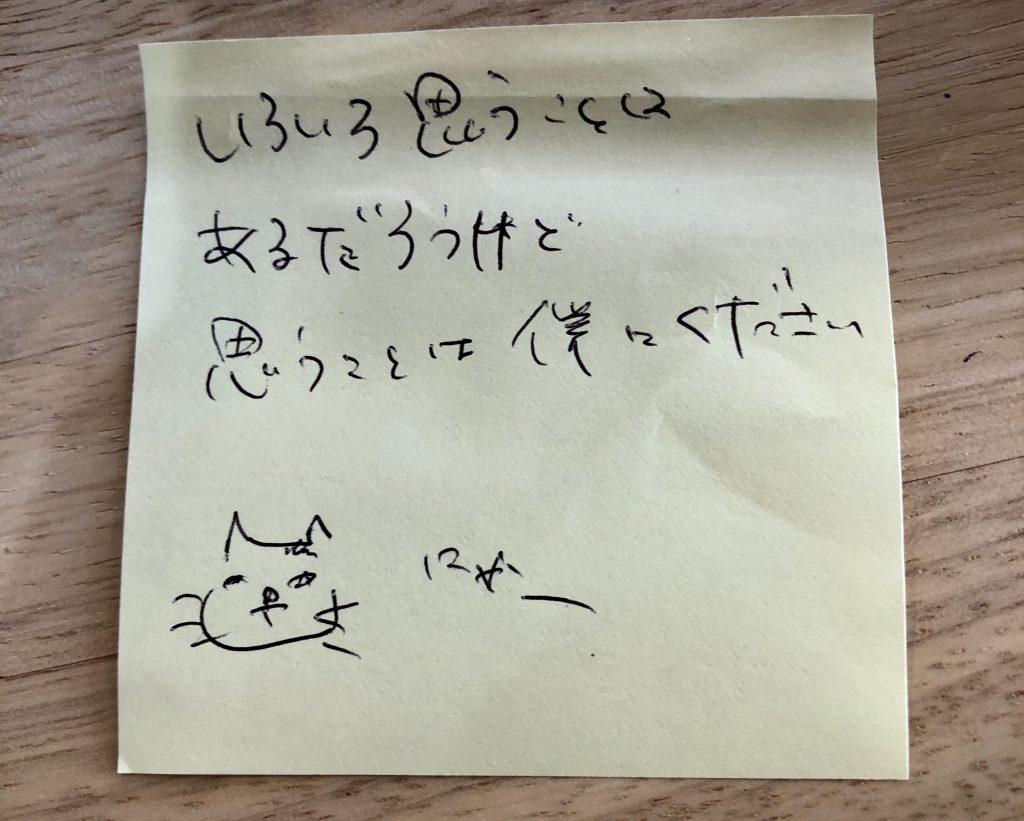 いろいろ思うことは
あるだろうけど
思うことは僕にください
にゃー